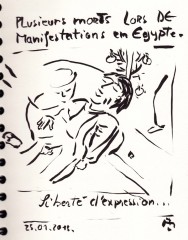 Plusieurs morts lors de
Manifestations en Egypte.
Liberté d'expression...